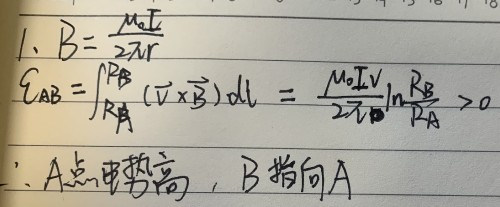 1、B = μ₀I / 2πr
ε_AB = ∫_{R_A}^{R_B} (v⃗ × B⃗) dl = μ₀IV / 2π ln R_B / R_A > 0
∴ A点电势高，B指向A